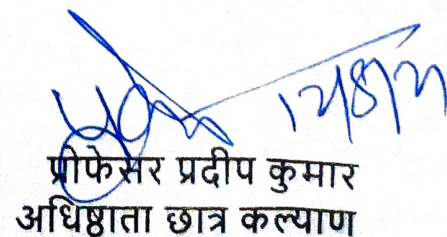 12/8/21
प्रोफेसर प्रदीप कुमार
अधिष्ठाता छात्र कल्याण